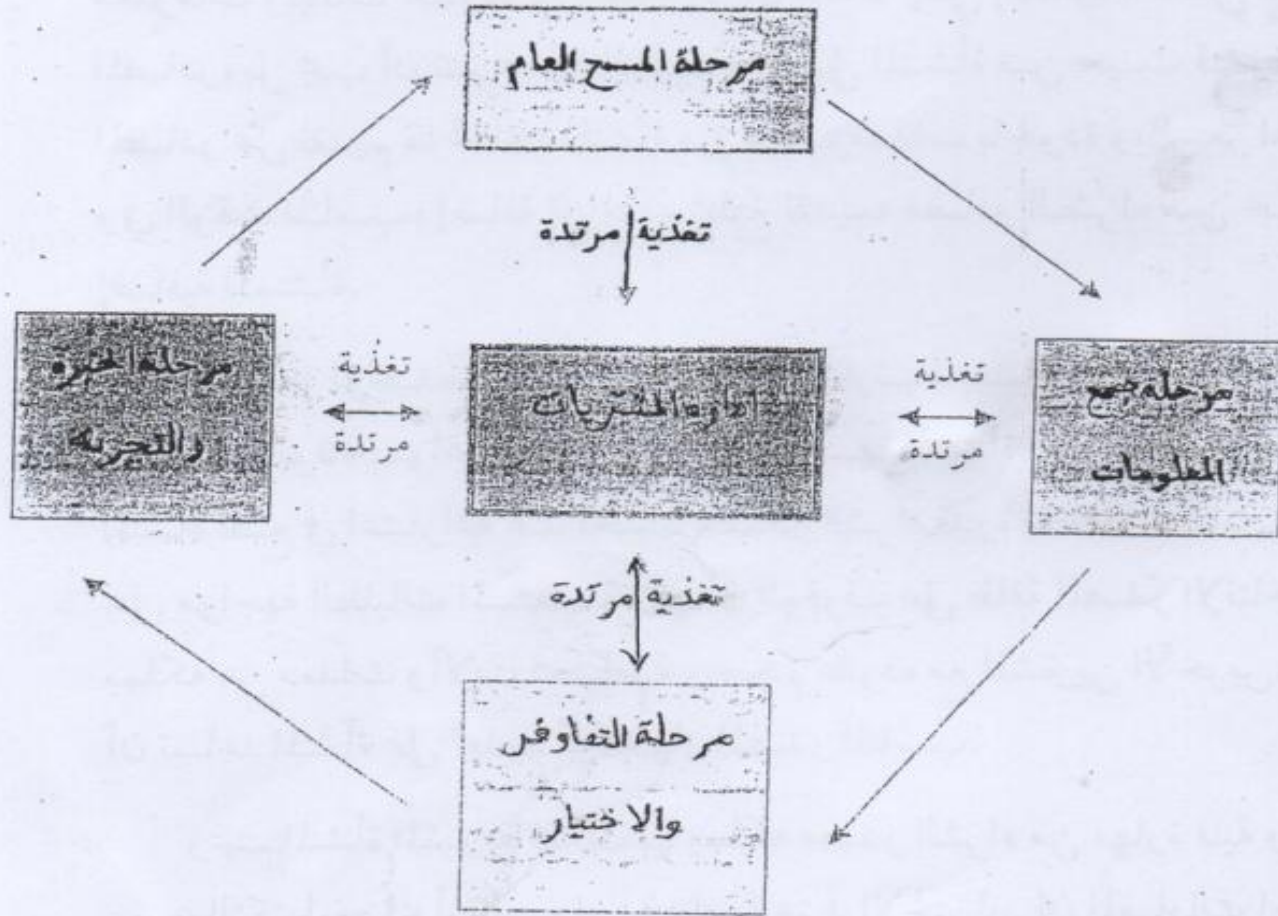 مرحلة المسح العام
تغذية مرتدة
مرحلة جمع
المعلومات
تغذية
مرتدة
ادارة المشتريات
تغذية
مرتدة
مرحلة الخبرة
والتجربة
تغذية مرتدة
مرحلة التفاوض
والاختيار